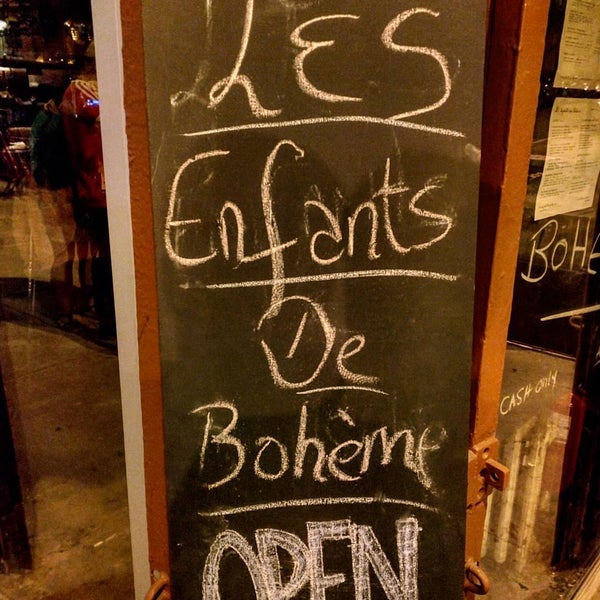 LES
Enfants
De
Bohème
OPEN
BOHE
CASH ONLY